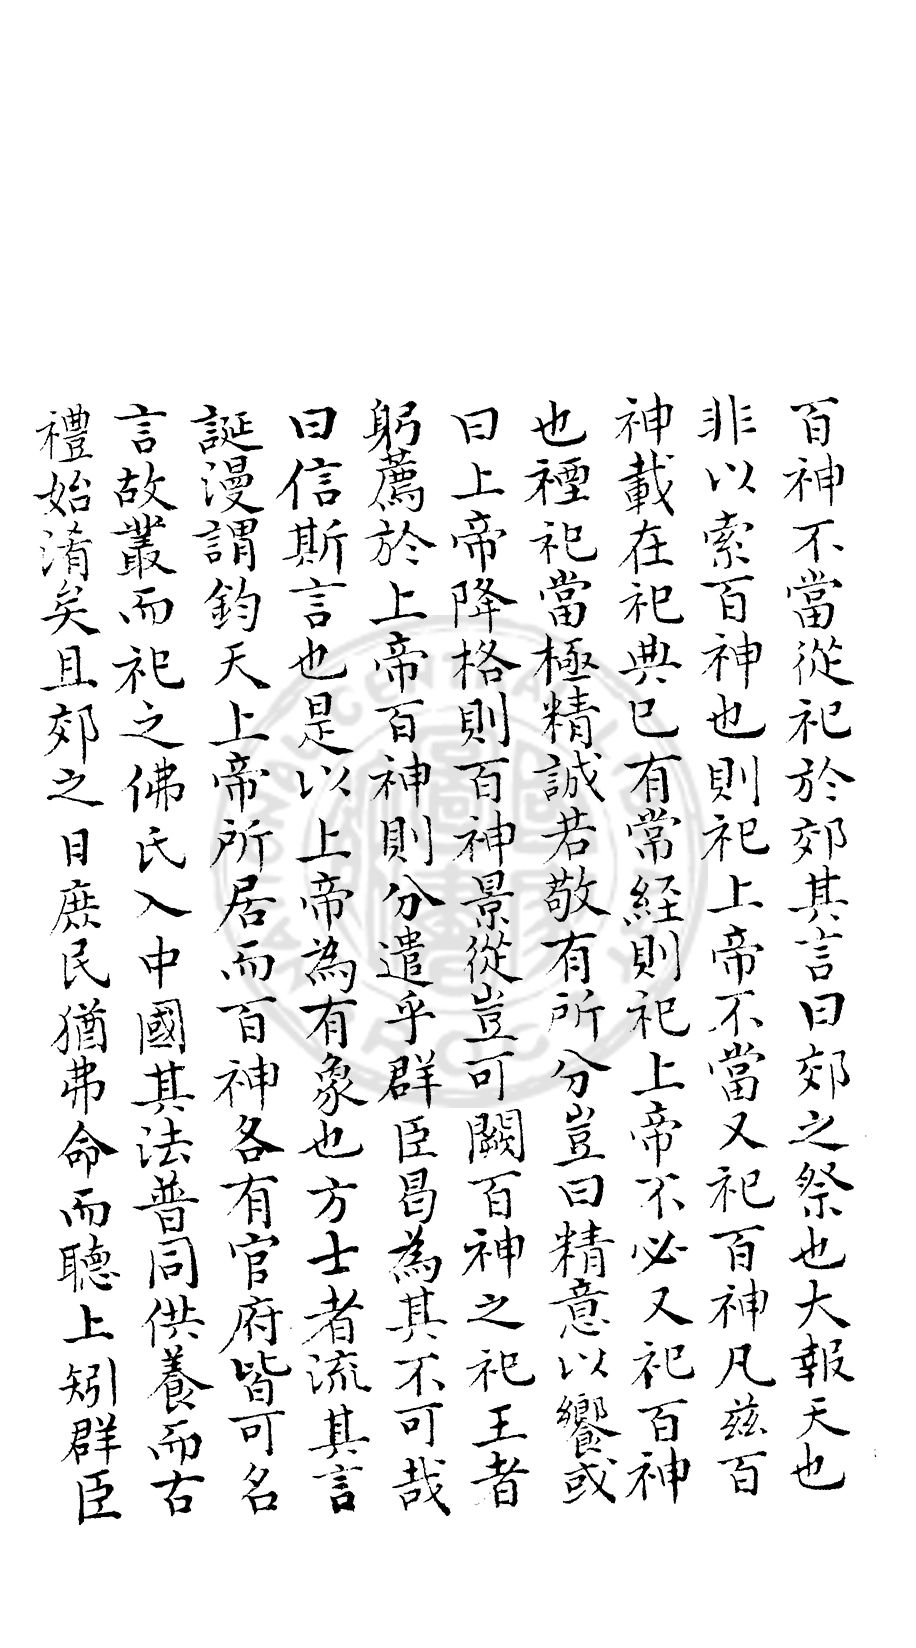 百神不當從祀於郊其言曰郊之祭也大報天也
非以索百神也則祀上帝不當又祀百神凡茲百
神載在祀典已有常經則祀上帝不必又祀百神
也禋祀當極精誠若敬有所分豈曰精意以饗或
曰上帝降格則百神景從豈可闕百神之祀王者
躬薦於上帝百神則分遣乎群臣曷為其不可哉
曰信斯言也是以上帝為有象也方士者流其言
誕漫謂鈞天上帝所居而百神各有官府皆可名
言故叢而祀之佛氏入中國其法普同供養而古
禮始淆矣且郊之日庶民猶弗命而聽上矧群臣